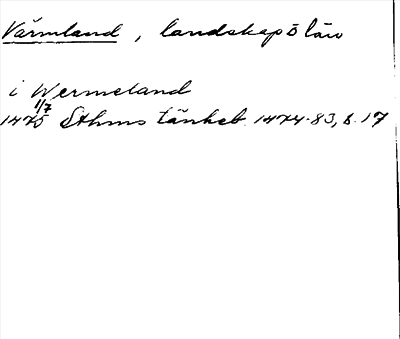 Värmland, landskap o län
i Wermeland
1/7
1475 Sthms tänkeb. 1474-83, s. 17